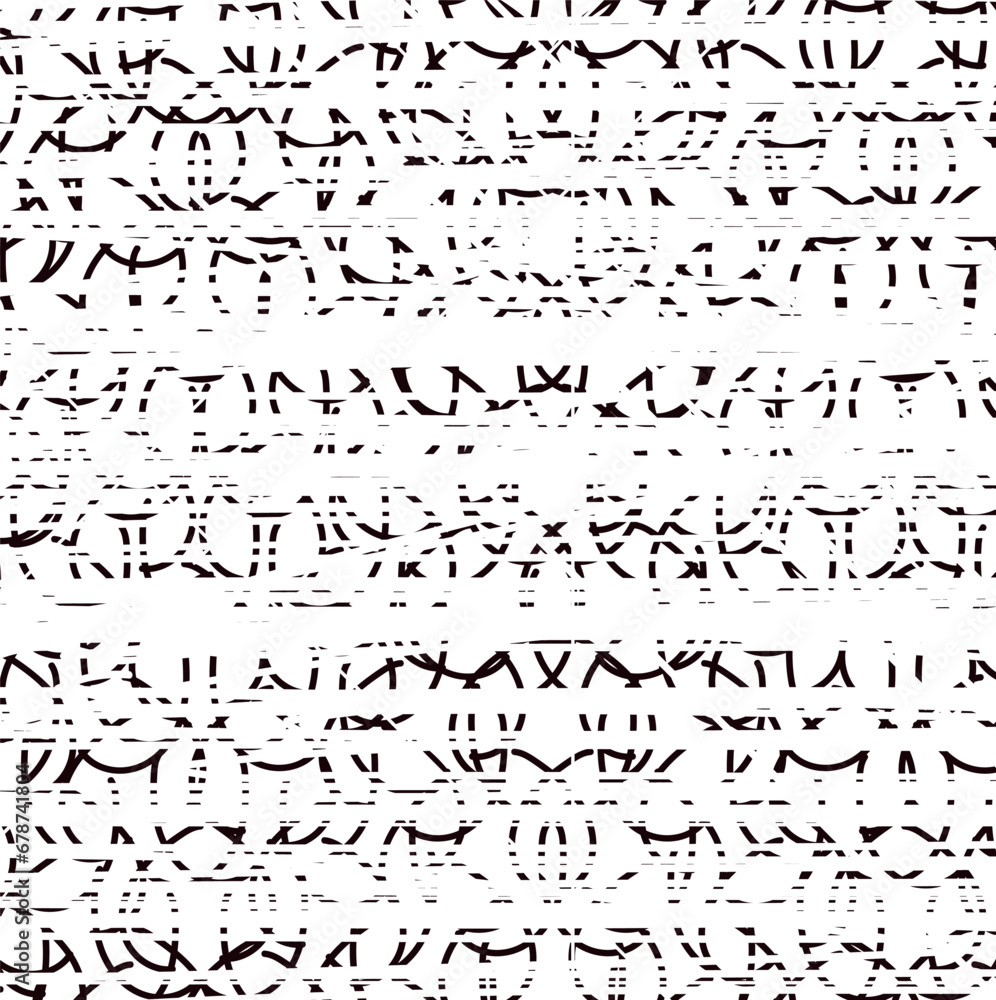 Adobe Stock | #678741804